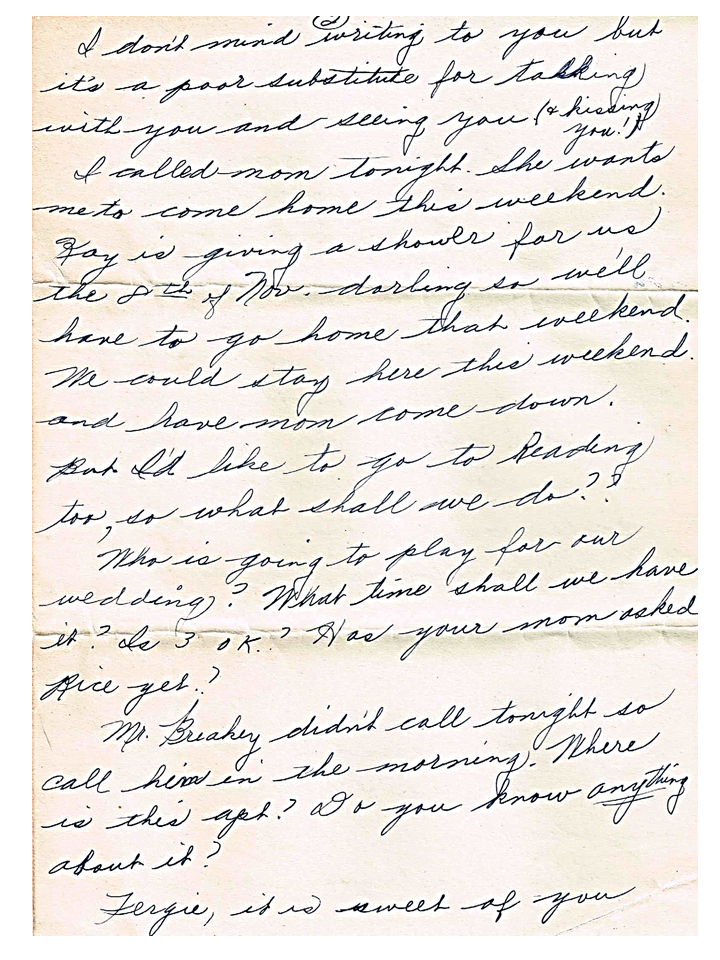 (2)
I don't mind writing to you but
it's a poor substitute for talking
with you and seeing you (& kissing
you!)
I called mom tonight. She wants
me to come home this weekend.
Kay is giving a shower for us
the 8th of Nov. darling so we'll
have to go home that weekend.
We could stay here this weekend.
and have mom come down.
But I'd like to go to Reading
too, so what shall we do??
Who is going to play for our
wedding? What time shall we have
it? Is 3 O.K.? Has your mom asked
Rice yet?
Mr. Breakey didn't call tonight so
call him in the morning. Where
is this apt? Do you know anything
about it?
Fergie, it is sweet of you